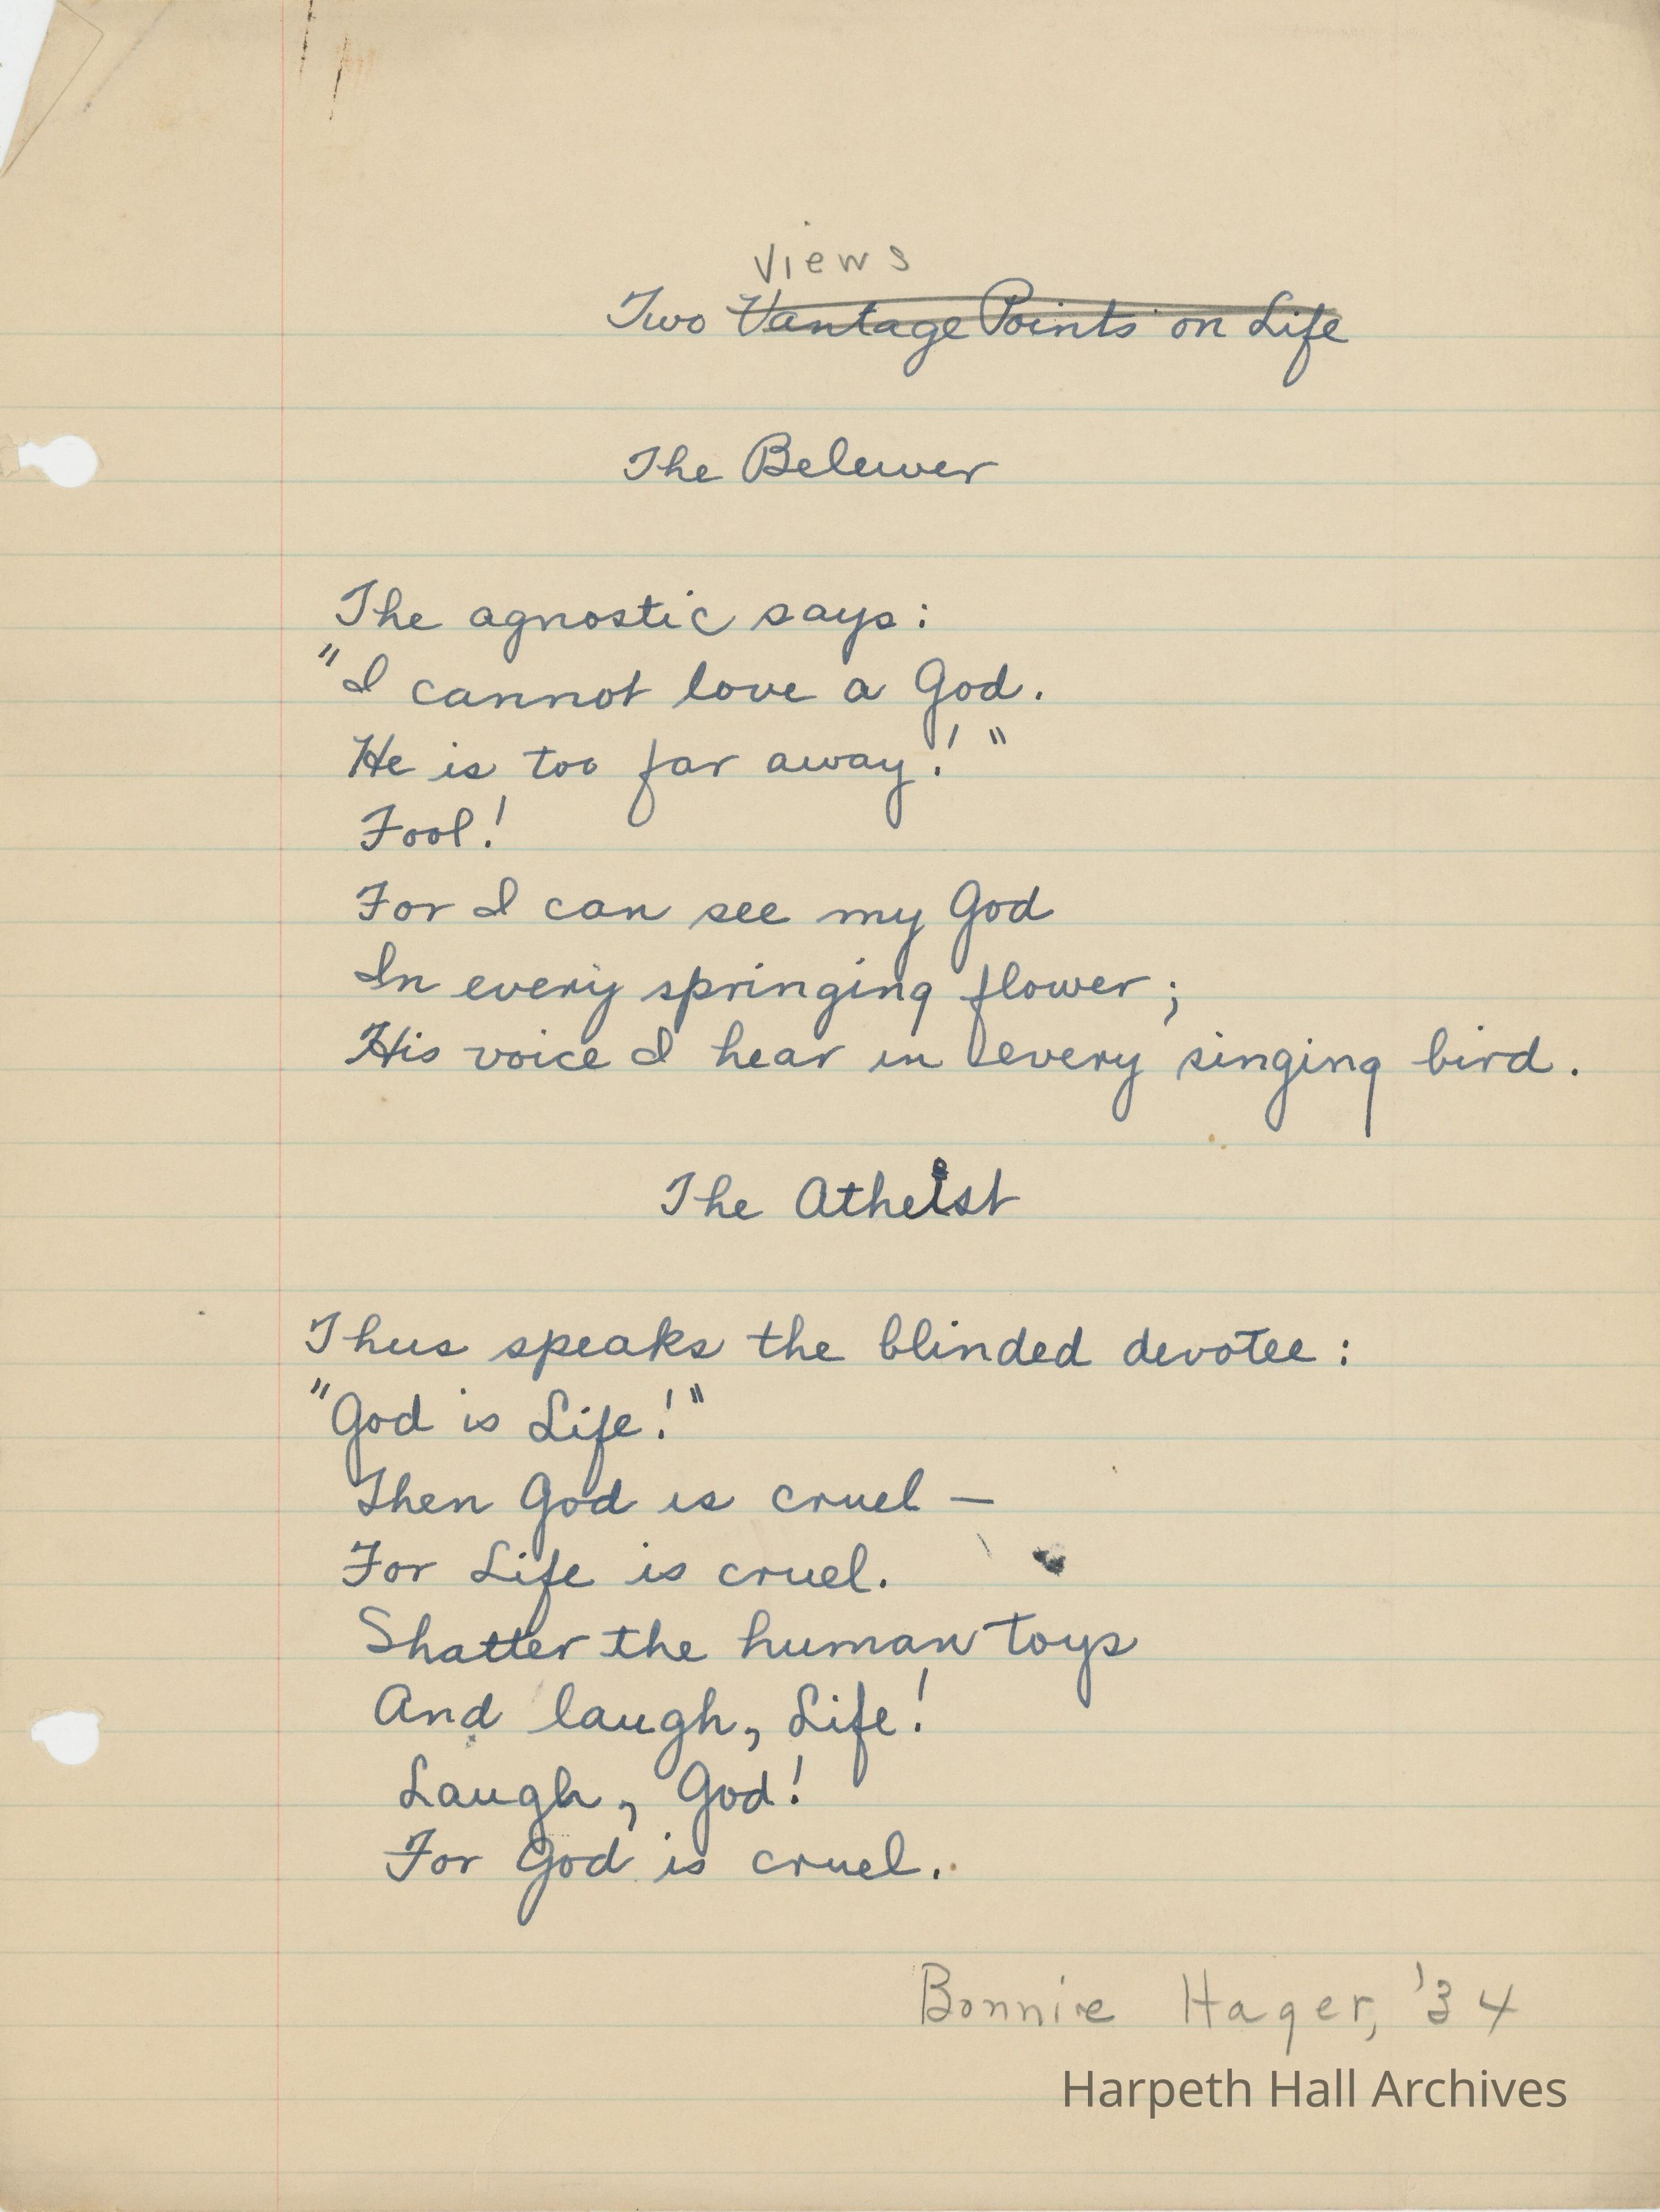 Views
Two Vantage Points on Life
The Believer
The agnostic says:
"I cannot love a God.
He is too far away!"
Fool!
For I can see my God
In every springing flower;
His voice I hear in every singing bird.
The Atheist
Thus speaks the blinded devotee:
"God is Life!"
Then God is cruel —
For Life is cruel.
Shatter the human toys
And laugh, Life!
Laugh, God!
For God is cruel.
Bonnie Hager, '34
Harpeth Hall Archives